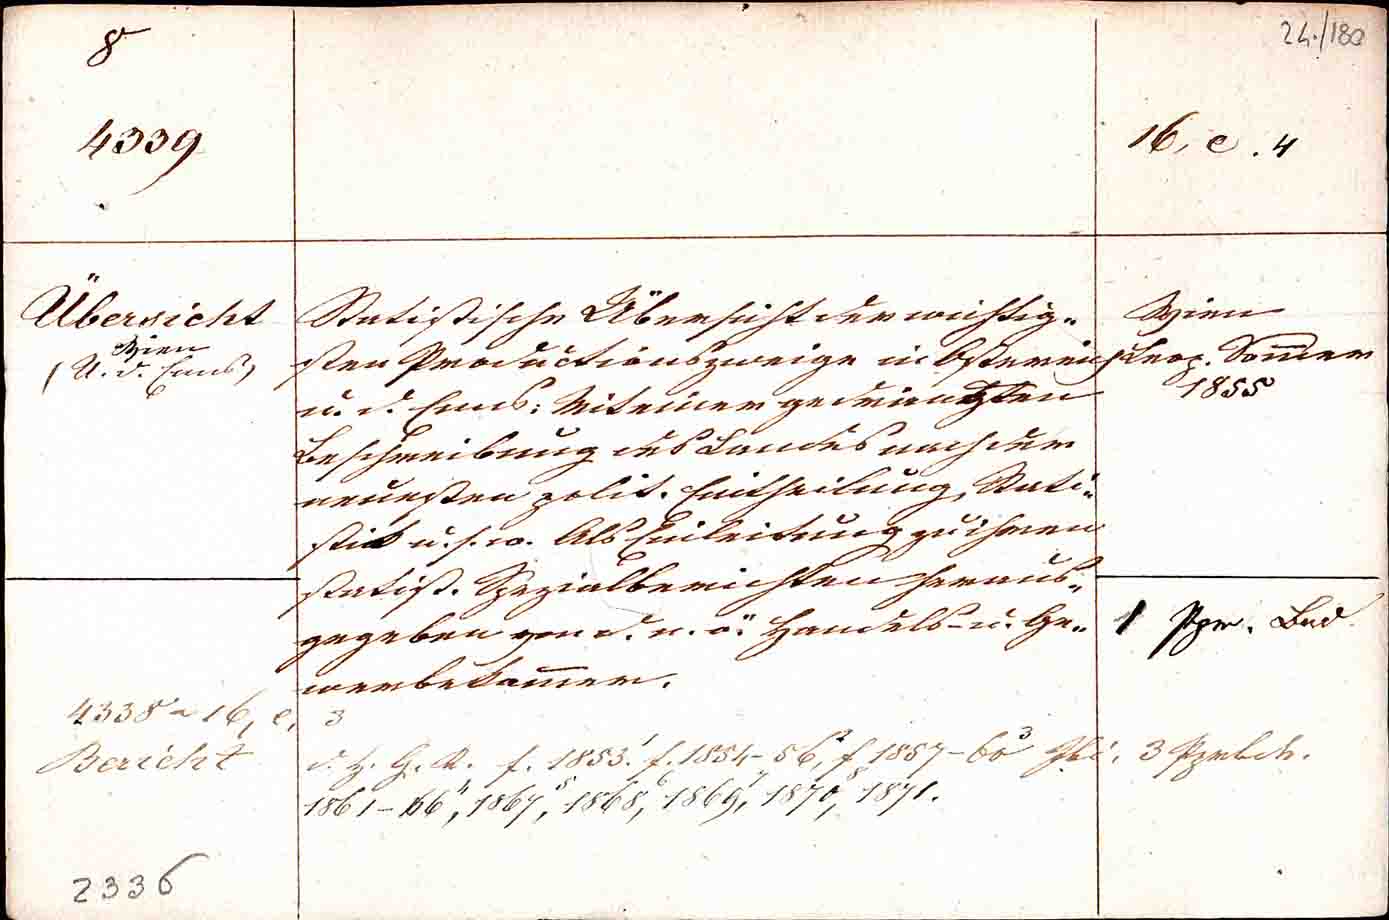 8°
24./180
4339
16, e. 4
Übersicht
Wien
(U. d. Enns)
Statistische Übersicht der wichtig-
sten Productionszweige in Österreich
u. d. Enns: Mit einer gedrängten
Beschreibung des Landes nach der
neuesten polit. Eintheilung, Stati-
stik u. s. w. Als Einleitung zu ihren
statist. Spezialberichten heraus-
gegeben von d. n. ö. Handels- u. Ge-
werbekammer.
Wien
Leop. Sommer
1855
1 Ppr. Bnd.
4338 16, e, 3
Bericht d. H. G. K. f. 1853¹ f. 1854-56², f 1857-60³ 3 Pprbde.
1861-66⁴, 1867⁵, 1868⁶, 1869⁷, 1870⁸, 1871.
2336